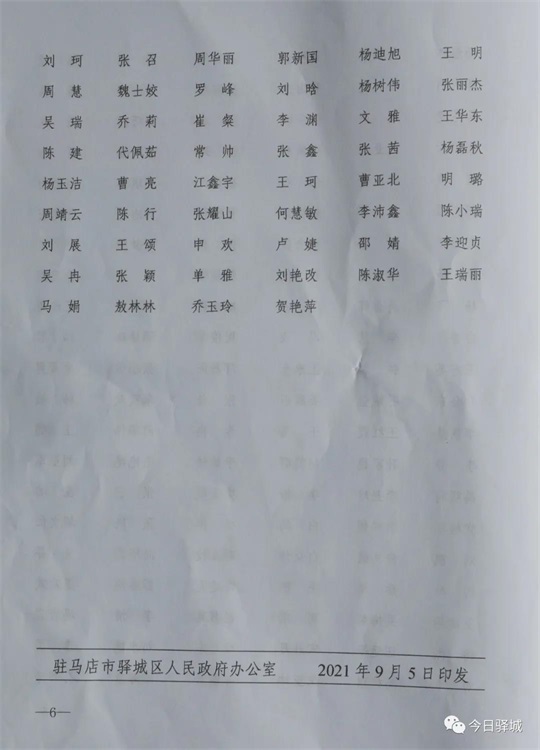 刘 珂 张 召 周华丽 郭新国 杨迪旭 王 明
周 慧 魏士姣 罗 峰 刘 晗 杨树伟 张丽杰
吴 瑞 乔 莉 崔 粲 李 渊 文 雅 王华东
陈 建 代佩茹 常 帅 张 鑫 张 茜 杨磊秋
杨玉洁 曹 亮 江鑫宇 王 珂 曹亚北 明 璐
周靖云 陈 行 张耀山 何慧敏 李沛鑫 陈小瑞
刘 展 王 颂 申 欢 卢 婕 邵 婧 李迎贞
吴 冉 张 颖 单 雅 刘艳改 陈淑华 王瑞丽
马 娟 敖林林 乔玉玲 贺艳萍
驻马店市驿城区人民政府办公室 2021年9月5日印发
—6—
今日驿城